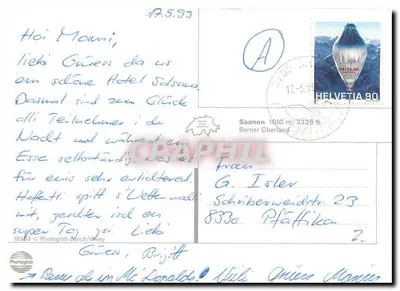 17.5.99
Hoi Manni,
liebi Grüess da us
em schöne Hotel
Dasmal sind zum Glück
alli Teilnehmer i de
Nacht und während em
Esse selbständig, was es
für eis sehr erlichteret.
Hoffentli spilt s'Wetter no
mit, gester isch en
super Tag gsi. Liebi
Grüess, Birgitt
A
HELVETIA 90
Saanen 1010 m/3328 ft
Berner Oberland
Frau
G. Isler
Schriberweidstr. 23
8330 Pfäffikon
Z.
Photoglob Zürich/Vevey
Photoglob
im Mc Donalds! Grüess